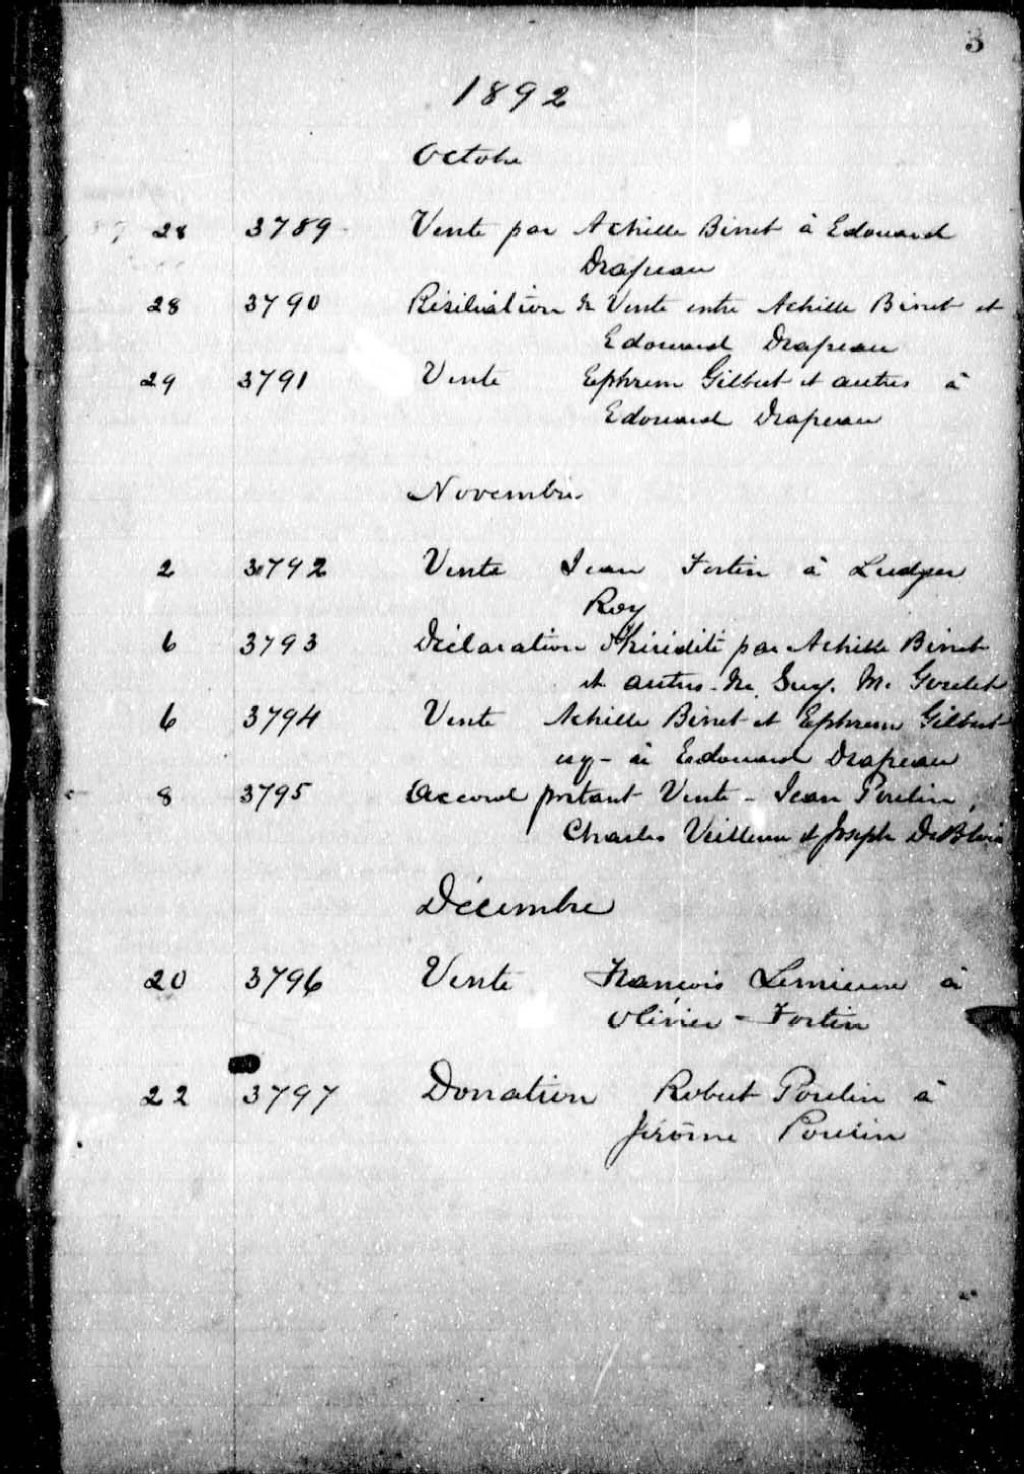 3
1892
Octobre
28 3789 Vente par Achille Binet à Edouard
Drapeau
28 3790 Résiliation de Vente entre Achille Binet et
Edouard Drapeau
29 3791 Vente Ephrem Gilbert et autres à
Edouard Drapeau
Novembre
2 3792 Vente Jean Fortin à Ludger
Roy
6 3793 Déclaration d'hérédité par Achille Binet
et autres de M. Goulet
6 3794 Vente Achille Binet et Ephrem Gilbert
à Edouard Drapeau
8 3795 Accord portant Vente - Jean Poulin,
Charles Veilleux & Joseph DeBlois
Décembre
20 3796 Vente François Lemieux à
Olivier Fortin
22 3797 Donation Robert Poulin à
Jérôme Poulin